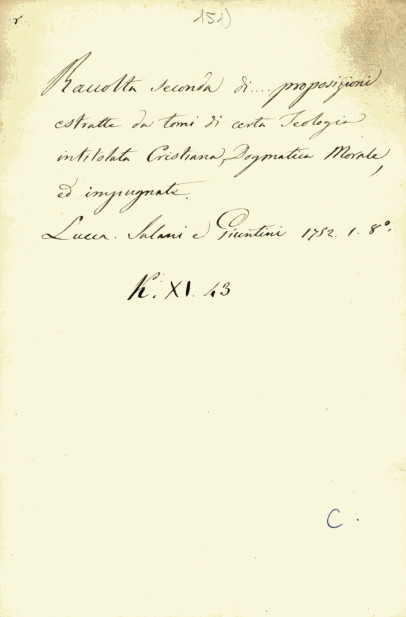 151)
Raccolta seconda di.... proposizioni
estratte da tomi di certa Teologia
intitolata Cristiana, Dogmatica Morale,
ed impugnate.
Lucca. Salani e Giuntini 1752. 1. 8º.
K. XI. 43
C.